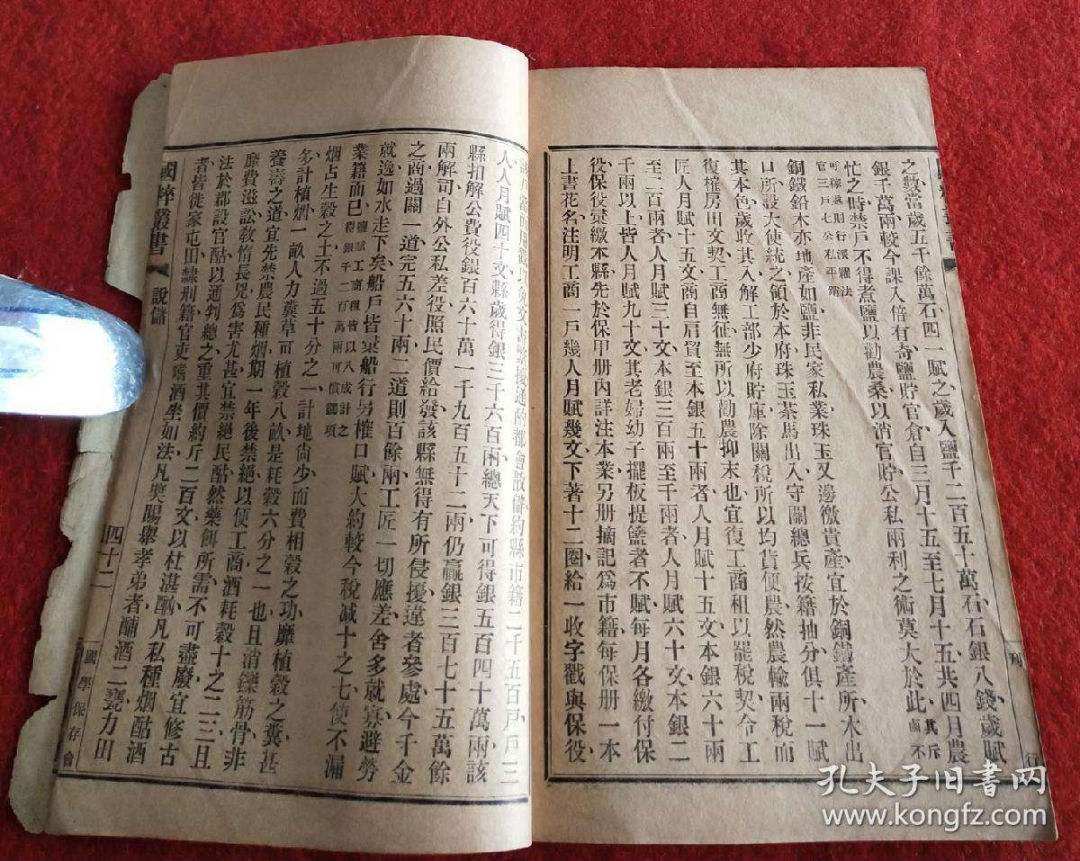 之數當歲五千餘萬石四一賦之歲入鹽千二百五十萬石石銀八錢歲賦
銀千萬兩較今課入倍有奇鹽貯官倉自三月十五至七月十五共四月農
忙之時禁戶不得煮鹽以勸農桑以消官貯公私兩利之術莫大於此其斥鹵不
官三戶七公私平
銅鐵鉛木亦地產如鹽非民家私業珠玉又邊徼貴產宜於銅鐵產所木出
口所設大使統之領於本府珠玉茶馬出入守關總兵按籍抽分俱十一賦
其本色歲收其入解工部少府貯庫除關稅所以均貨便農然農輸兩稅而
復榷房田文契工商無征無所以勸農抑末也宜復工商租以罷稅契令工
匠人月賦十五文商自肩貿至本銀五十兩者人月賦十五文本銀六十兩
至二百兩者人月賦三十文本銀三百兩至千兩者人月賦六十文本銀二
千兩以上皆人月賦九十文其老婦幼子擺板提籃者不賦每月各繳付保
役保役彙繳本縣先於保甲册內詳注本業另册摘記爲市籍每保册一本
上書花名注明工商一戶幾人月賦幾文下著十二圈給一收字戳與保役
都會散儲約縣市籍二千五百戶戶三
人人月賦四十文縣歲得銀三千六百兩總天下可得銀五百四十萬兩該
縣扣解公費役銀百六十萬一千九百五十二兩仍贏銀三百七十五萬餘
兩解司自外公私差役照民價給發該縣無得有所侵擾違者參處今千金
之商過關一道完五六十兩二道則百餘兩工匠一切應差舍多就寡避勞
就逸如水走下矣船戶皆與船行另榷口賦大約較今稅減十之七使不漏
業籍而已鹽賦工商租皆以八成計之得銀千二百萬兩可償鄉項
烟占生穀之土不過五十分之一計地尙少而費相穀之功靡植穀之糞甚
多計植烟一畝人力糞草可植穀八畝是耗穀六分之一也且消鑠筋骨非
養壽之道宜先禁農民種烟期一年後禁絕以便工商酒耗穀十之二三且
靡費滋訟敎惰長兇爲害尤甚宜禁絕民酤然藥餌所需不可盡廢宜修古
法於郡設官酤以通判總之重其價約斤二百文以杜湛酗凡私種烟酤酒
者皆徙家屯田隸刑籍官吏嗜酒坐如法凡奬賜舉孝弟者酺酒二甕力田
國粹叢書
說儲
四十二
國學保存會
刊
行
孔夫子旧书网
www.kongfz.com